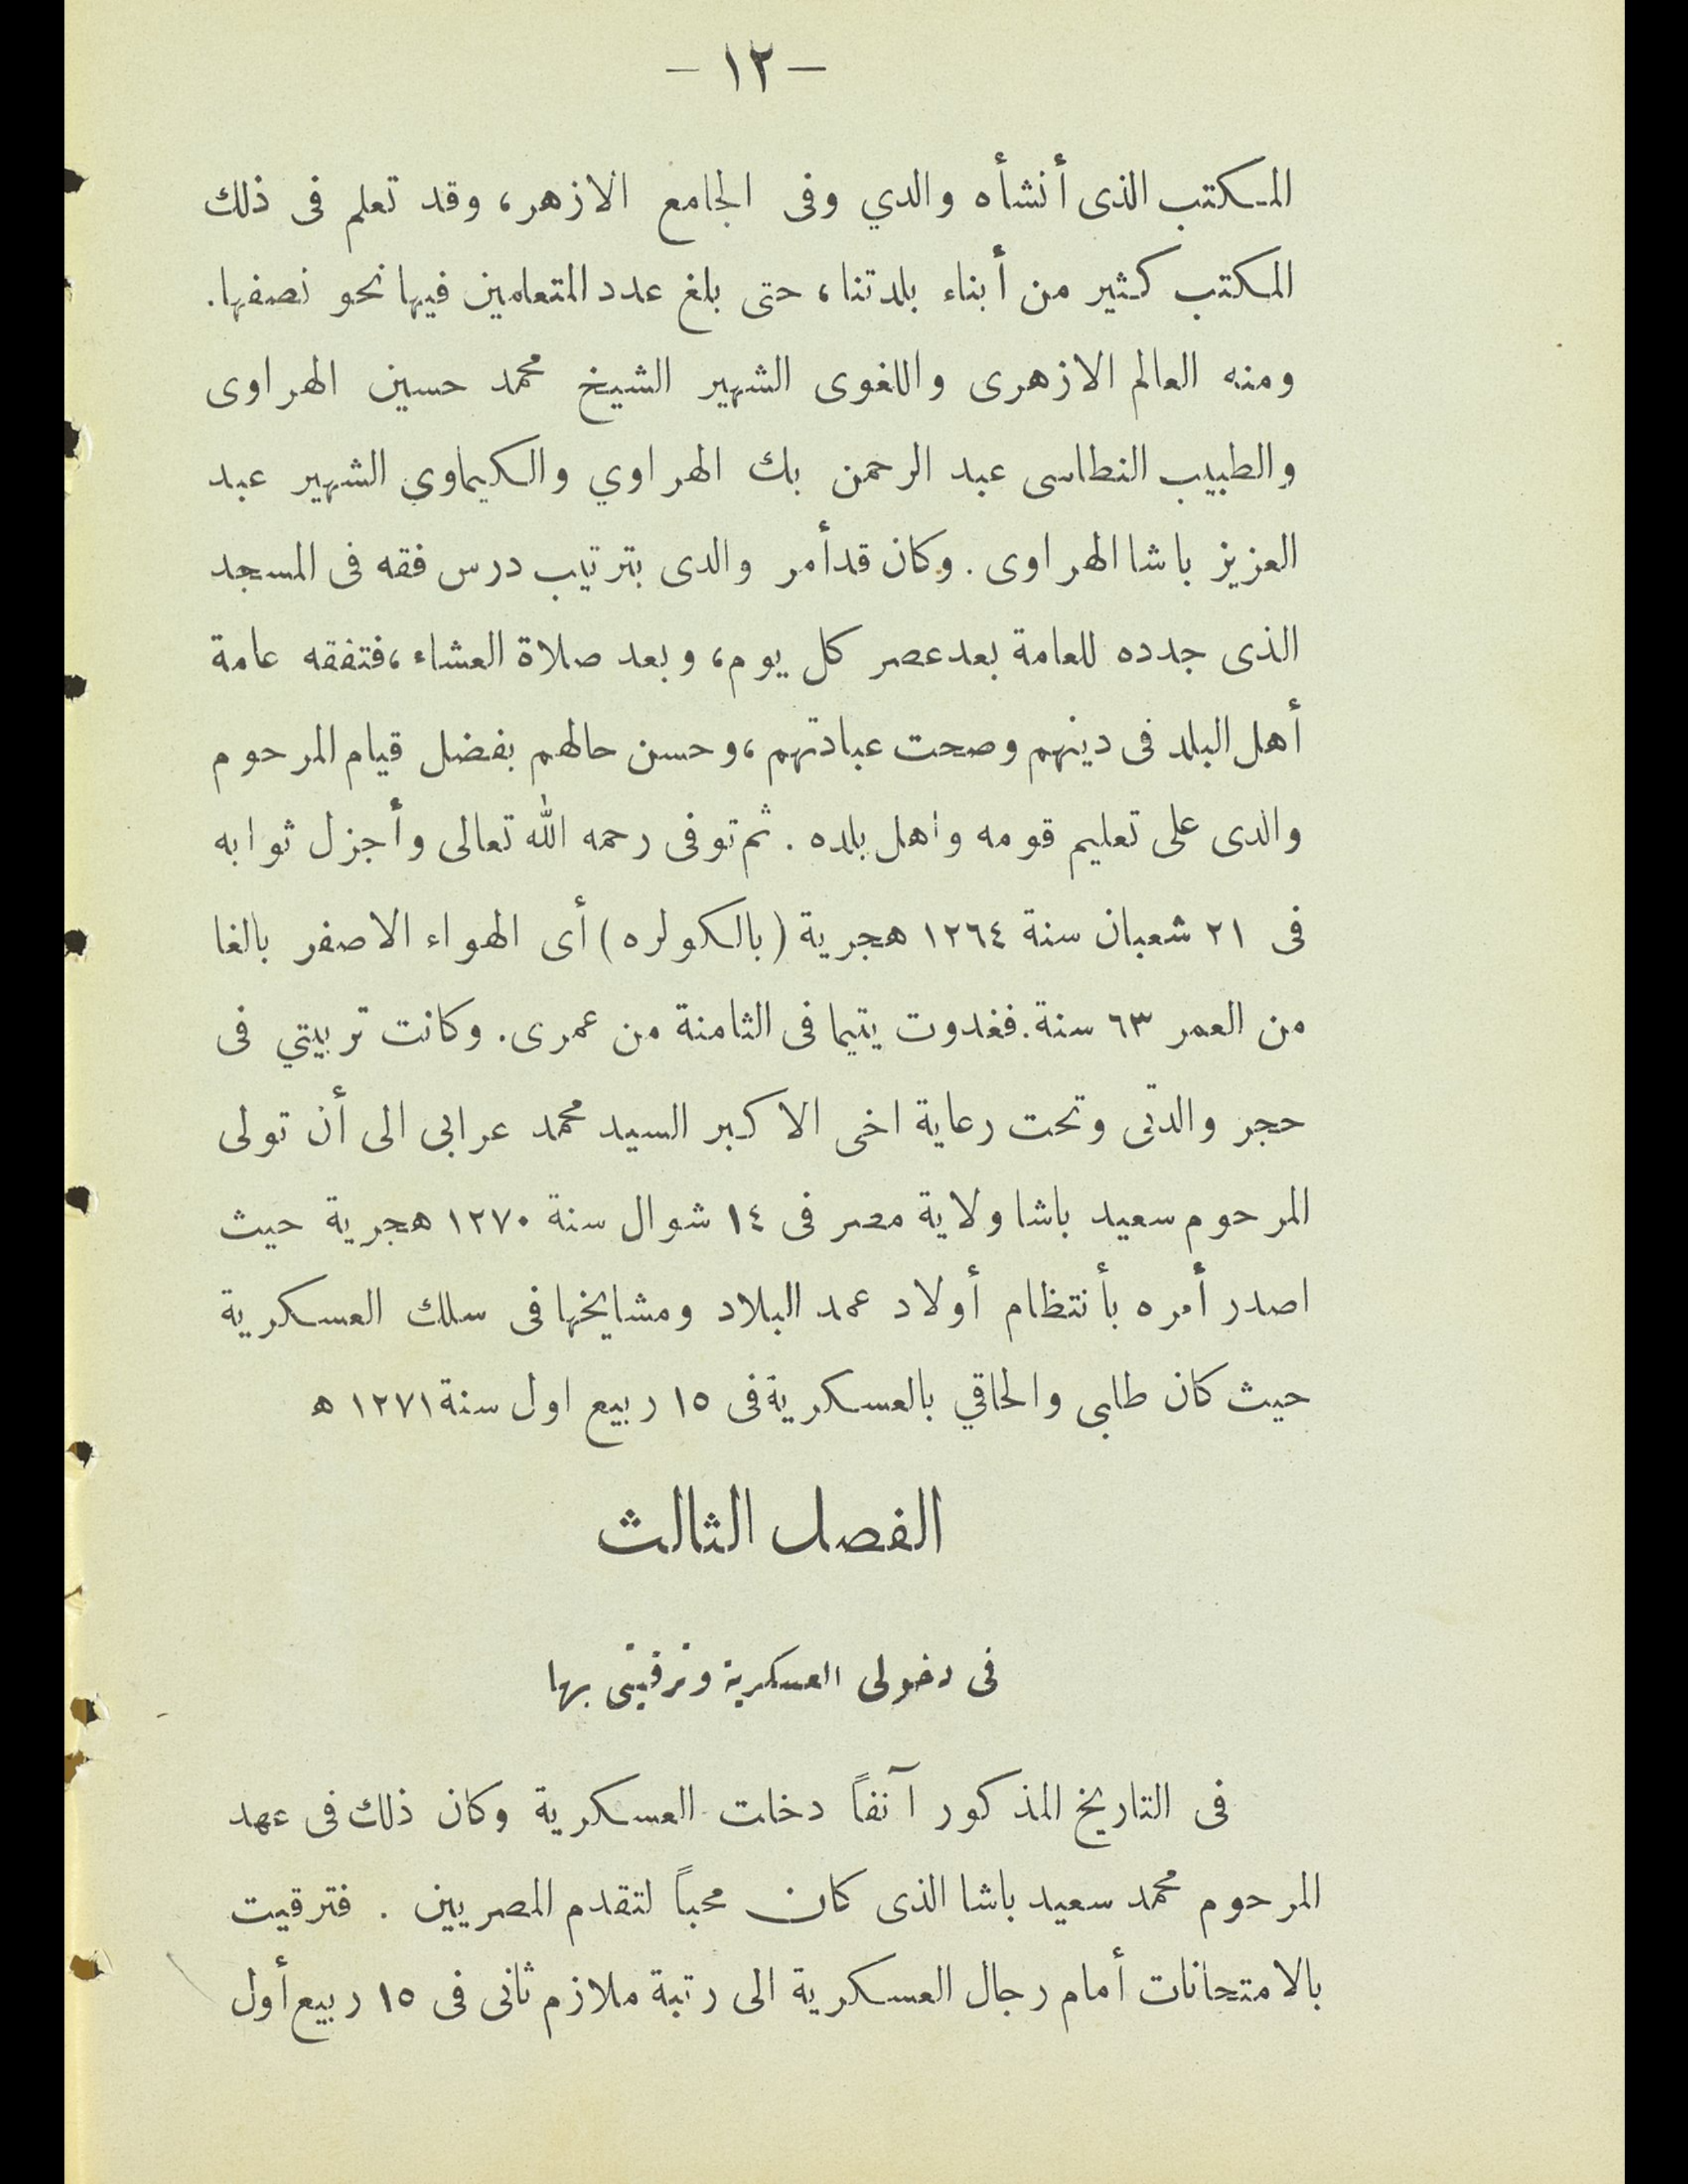 - ١٢ -
المكتب الذى أنشأه والدي وفى الجامع الازهر، وقد تعلم فى ذلك
المكتب كثير من أبناء بلدتنا، حتى بلغ عدد المتعلمين فيها نحو نصفها.
ومنه العالم الازهرى واللغوى الشهير الشيخ محمد حسين الهراوى
والطبيب النطاسى عبد الرحمن بك الهراوي والكيماوي الشهير عبد
العزيز باشا الهراوى. وكان قد أمر والدى بترتيب درس فقه فى المسجد
الذى جدده للعامة بعد عصر كل يوم، وبعد صلاة العشاء، فتفقه عامة
أهل البلد فى دينهم وصحت عبادتهم، وحسن حالهم بفضل قيام المرحوم
والدى على تعليم قومه واهل بلده. ثم توفى رحمه الله تعالى وأجزل ثوابه
فى ٢١ شعبان سنة ١٢٦٤ هجرية (بالكولره) أى الهواء الاصفر بالغا
من العمر ٦٣ سنة. فغدوت يتيما فى الثامنة من عمرى. وكانت تربيتي فى
حجر والدتى وتحت رعاية اخى الاكبر السيد محمد عرابى الى أن تولى
المرحوم سعيد باشا ولاية مصر فى ١٤ شوال سنة ١٢٧٠ هجرية حيث
اصدر أمره بأنتظام أولاد عمد البلاد ومشايخها فى سلك العسكرية
حيث كان طلبى والحاقي بالعسكرية فى ١٥ ربيع اول سنة ١٢٧١ ه
الفصل الثالث
فى دخولى العسكرية وترقيتى بها
فى التاريخ المذكور آنفاً دخلت العسكرية وكان ذلك فى عهد
المرحوم محمد سعيد باشا الذى كان محباً لتقدم المصريين . فترقيت
بالامتحانات أمام رجال العسكرية الى رتبة ملازم ثانى فى ١٥ ربيع أول